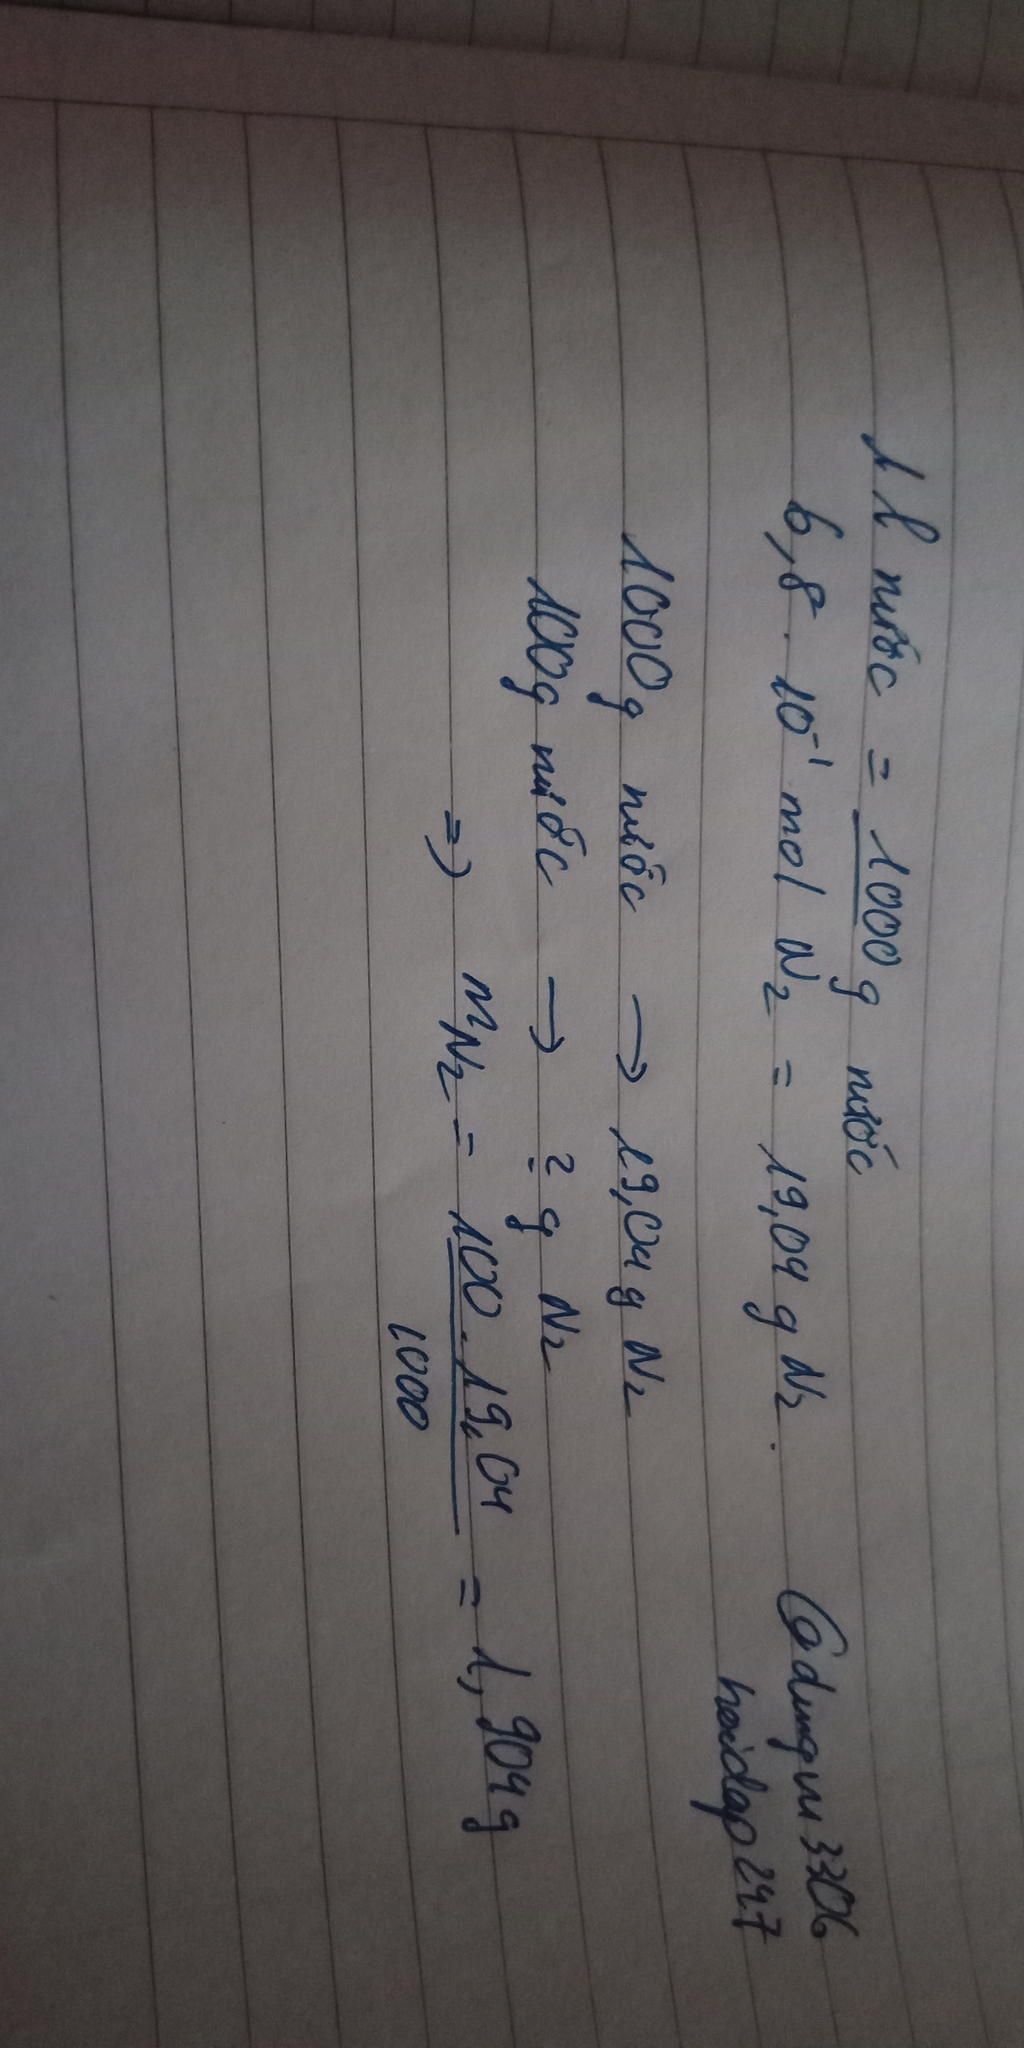 1 l nước = 1000 g nước
6,8 . 10⁻¹ mol N₂ = 19,04 g N₂ .
1000g nước → 19,04 g N₂
100g nước → ? g N₂
=) mN₂ = 100 . 19,04 / 1000 = 1,904 g
hoidap247